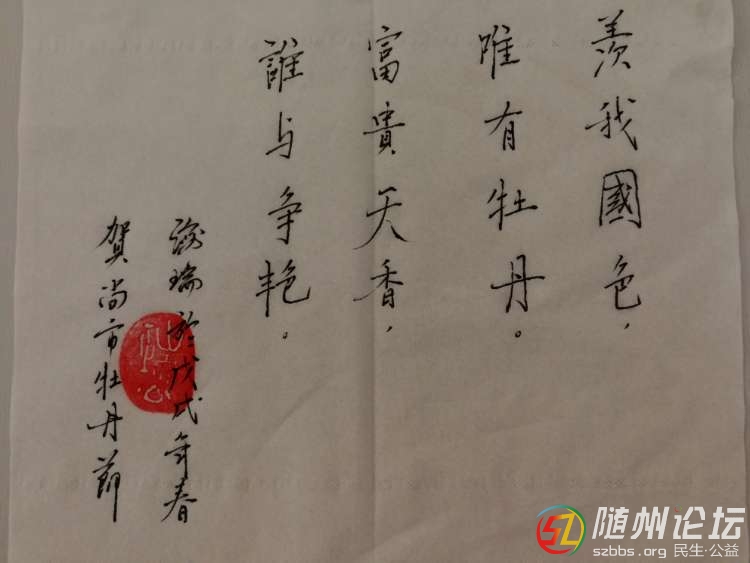 羡我國色，
唯有牡丹。
富貴天香，
誰与争艳。
瑞於戊戌年春
賀尚市牡丹節
随州论坛
szbbs.org 民生·公益